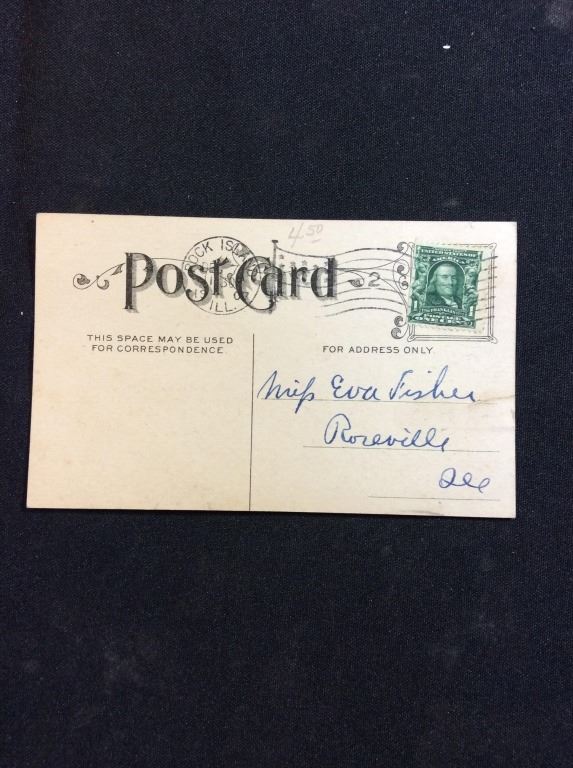 4.50
ROCK ISLAND
ILL.
2
Post Card
UNITED STATES OF
FRANKLIN
1 1
THIS SPACE MAY BE USED
FOR CORRESPONDENCE.
FOR ADDRESS ONLY
Miss Eva Fisher
Roseville
Ill